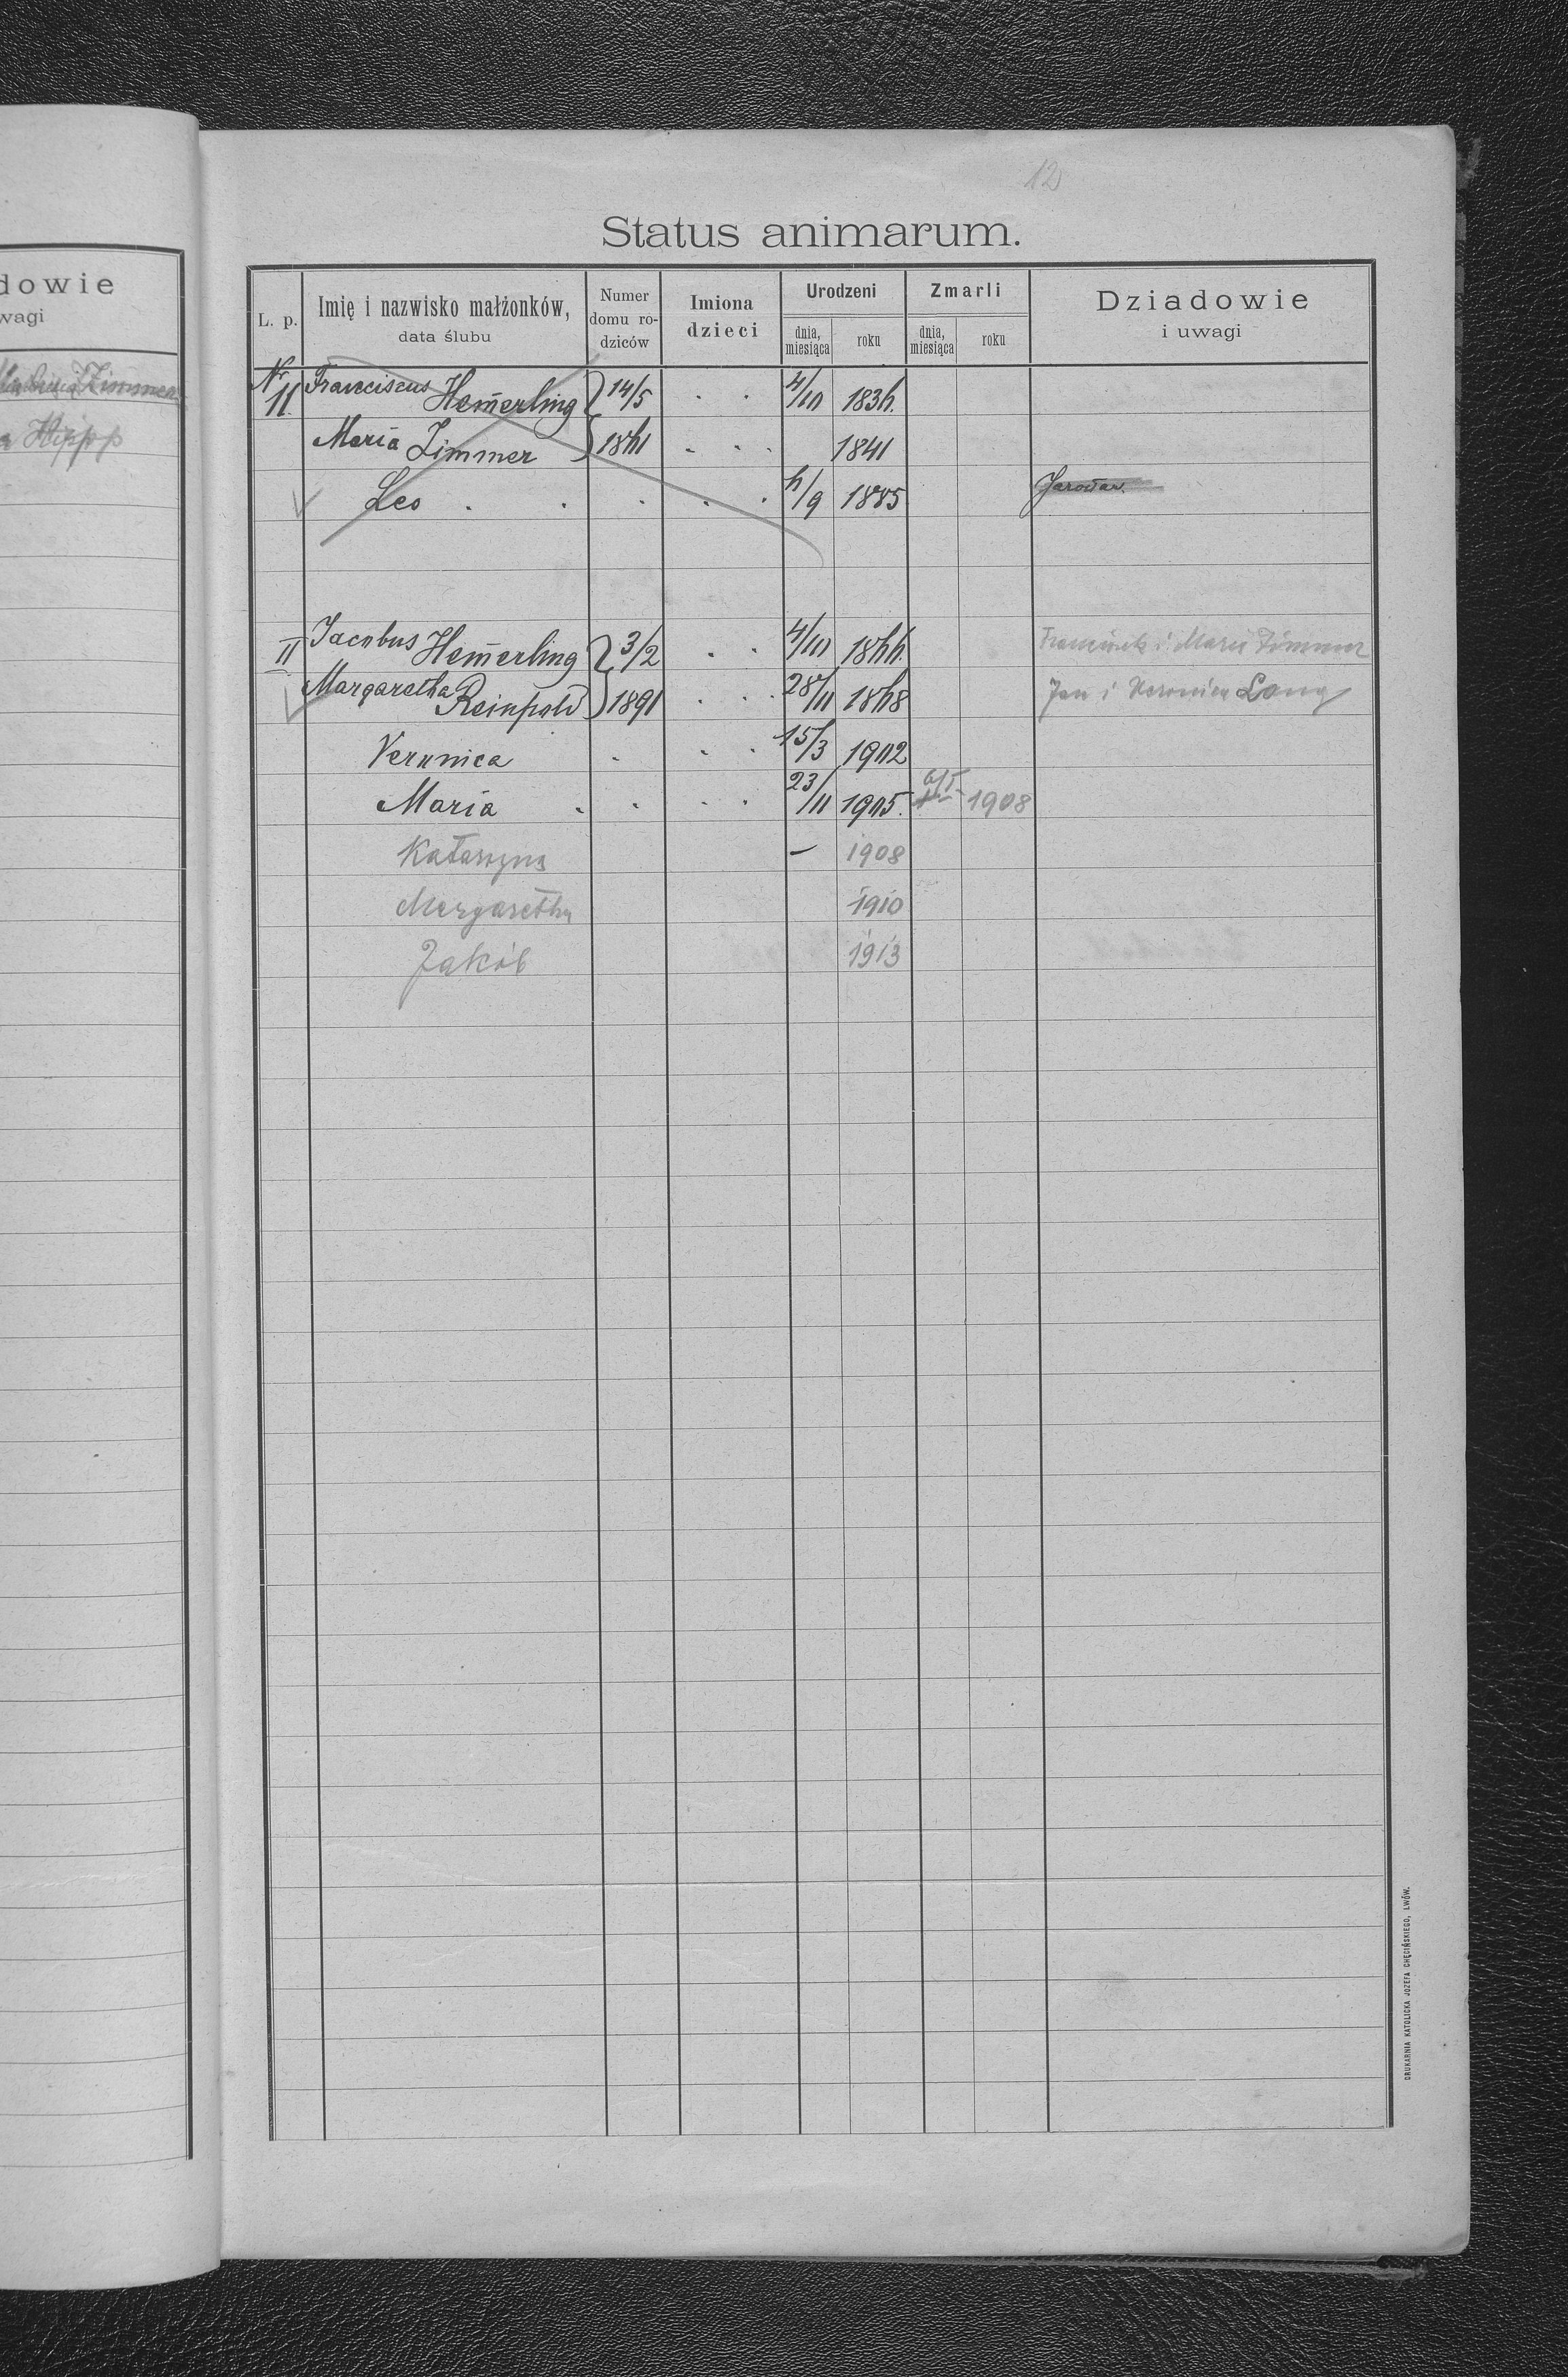 dowie
wagi
Zimmer
Hipp
12
Status animarum.
L. p.
Imię i nazwisko małżonków,
data ślubu
Numer
domu ro-
dziców
Imiona
dzieci
Urodzeni
dnia,
miesiąca
roku
Zmarli
dnia,
miesiąca
roku
Dziadowie
i uwagi
Nr 11. Franciscus Hem̄erling 14/5 4/10 1836.
Maria Zimmer 1861 1841
Leo 6/9 1885
II Jacobus Hem̄erling 3/2 4/10 1866. Franciszek i Maria Zimmer
Margaretha Reinpold 1891 28/11 1868 Jan i Weronica Lang
Veronica 15/3 1902
Maria 23/11 1905. 6/5 1908
Katarzyna – 1908
Margaretha 1910
Jakób 1913
DRUKARNIA KATOLICKA JOZEFA CHĘCIŃSKIEGO, LWÓW.